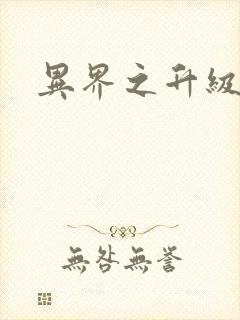 異界之升級
無咎無譽